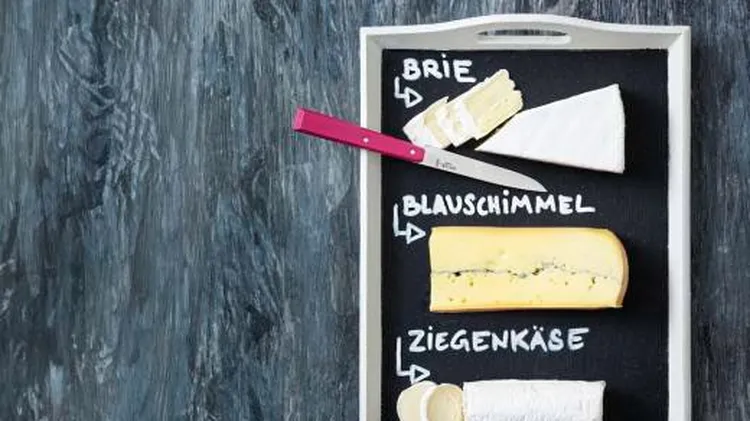 BRIE
BLAUSCHIMMEL
ZIEGENKÄSE